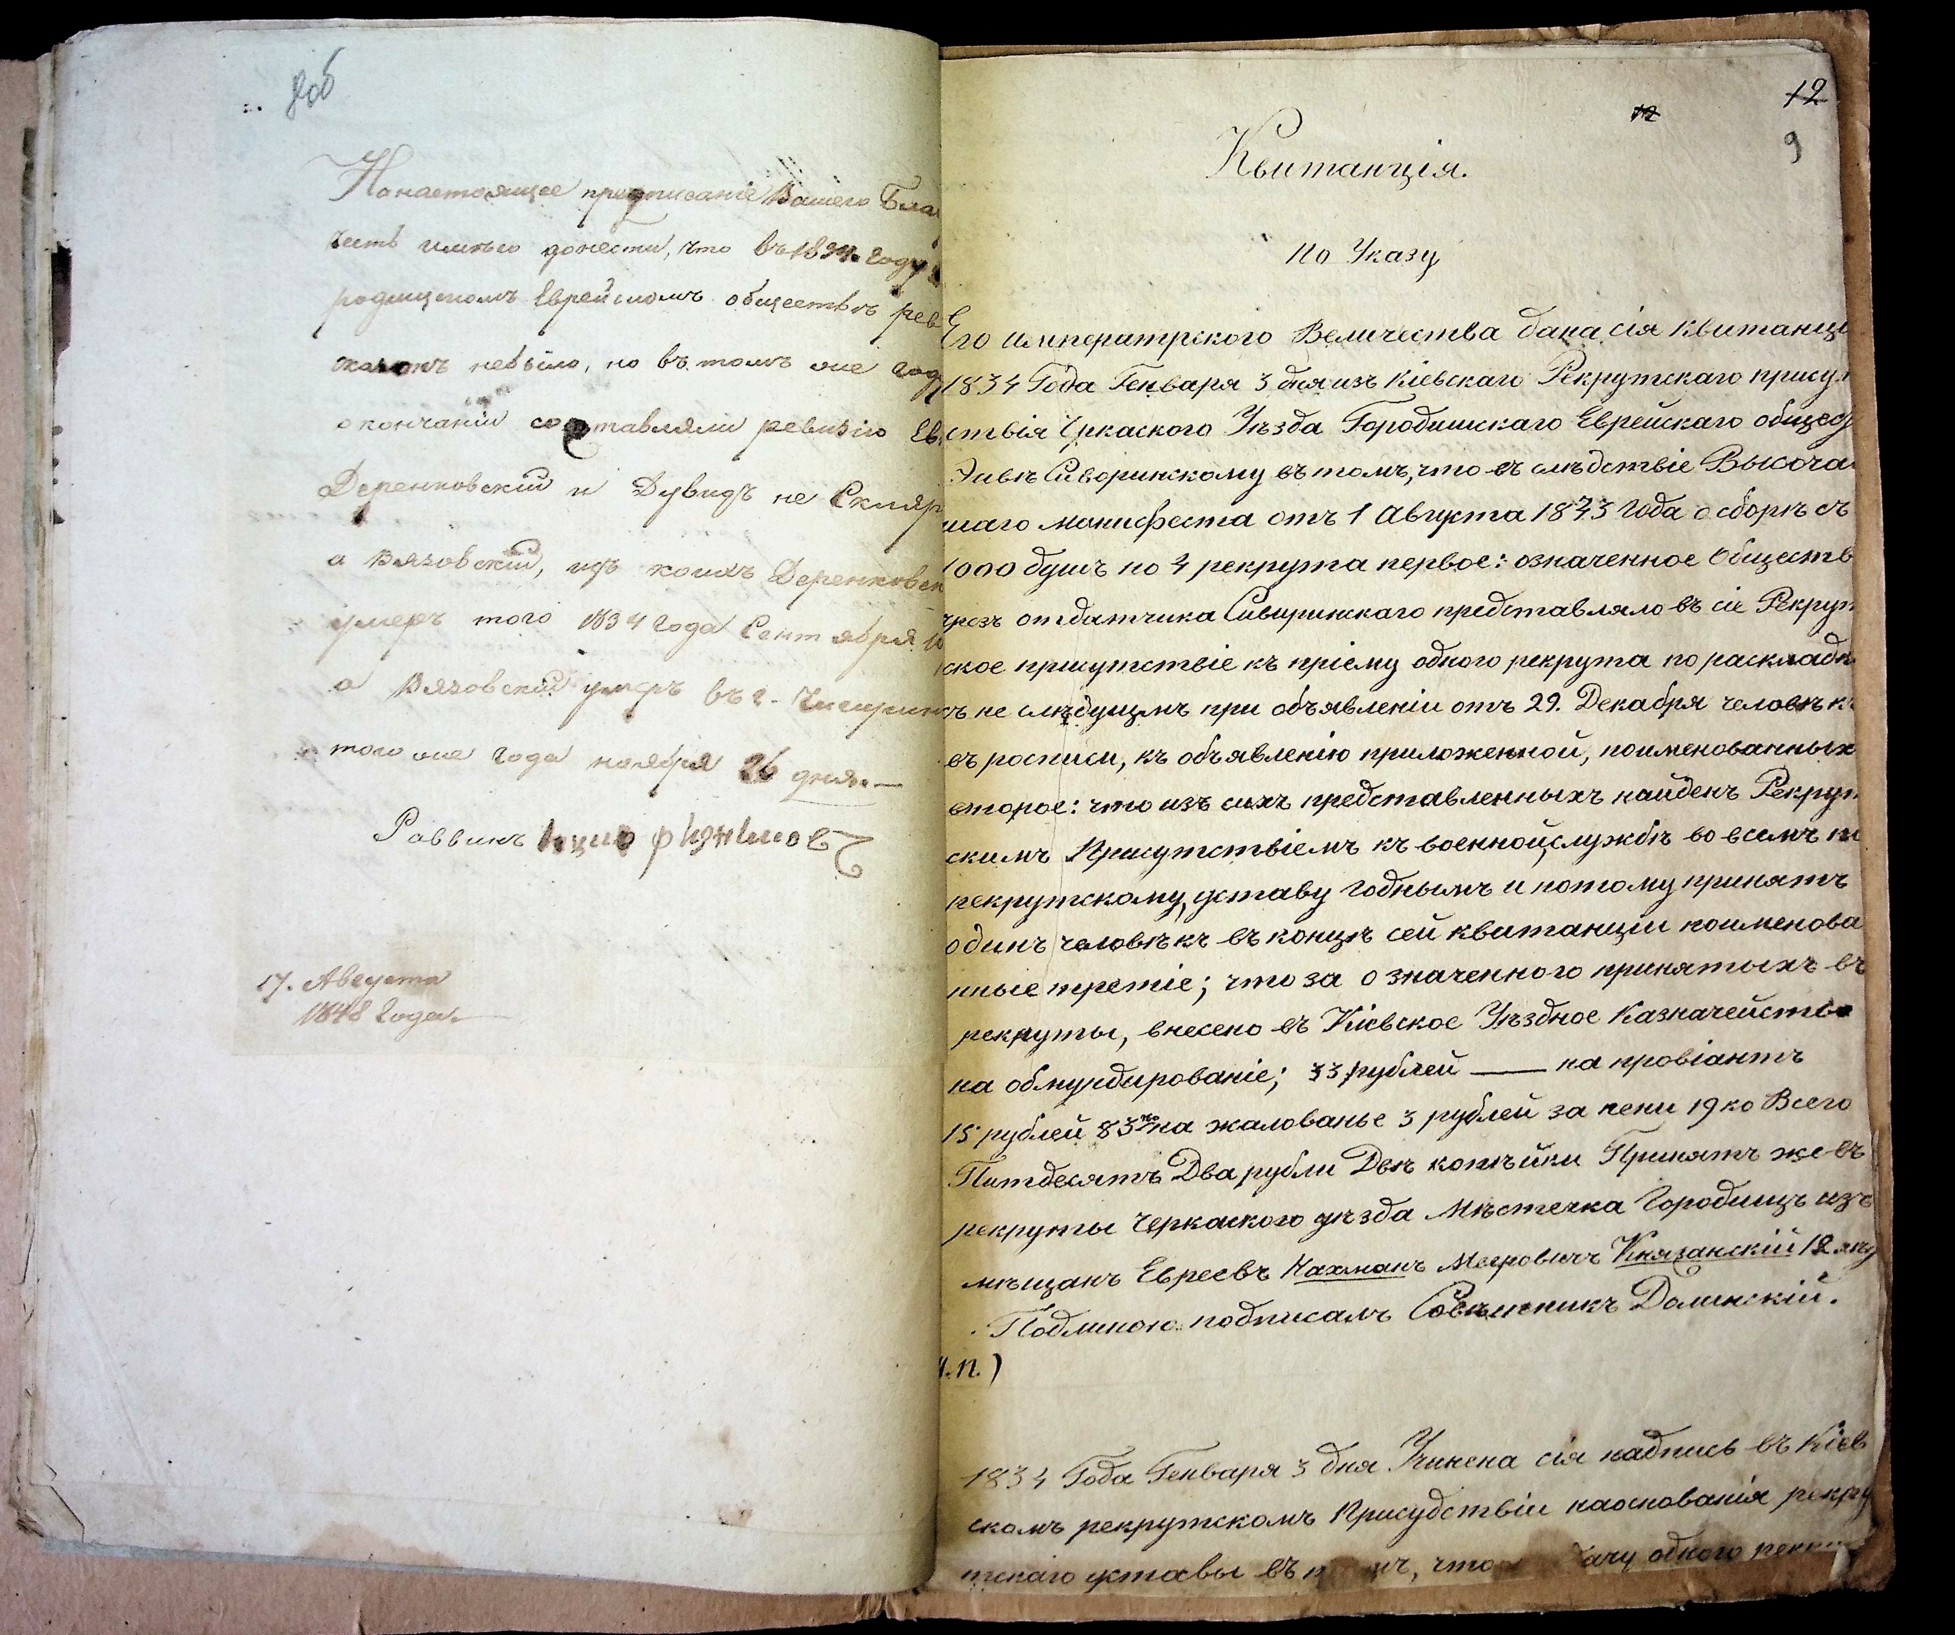 8об
На настоящее предписание Вашего Бла
честь имею донести, что въ 1834 году
родищскомъ Еврейскомъ обществѣ рев
небыло, но въ томъ же год
окончаніи составляли ревизію Ев
Деренковскій и Дувидъ не Скляр
а Вязовскій, изъ коихъ Деренковск
умеръ того 1834 года Сентября
а Вязовскій умеръ въ г. Чигирин
того же года ноября 26 дня.—
Раввинъ
17. Августа
1848 Года.
12
12
9
Квитанція.
По Указу
Его императрского Величества дана сія квитанці
1834 Года Генваря 3 дня изъ Кіевскаго Рекрутскаго присут
ствія Черкаского Уѣзда Городишскаго Еврейскаго общес
Сиворинскому въ томъ, что въ слѣдствіе Высоча
шаго манифеста отъ 1 Августа 1833 года о сборѣ съ
1000 душъ по 4 рекрута первое: означенное Обществ
чрезъ отдатчика Сиворинскаго представляло въ сіе Рекрут
ское присутствіе къ пріему одного рекрута по раскладк
съ не слѣдущмъ при объявленіи отъ 29. Декабря человѣк
въ росписи, къ объявленію приложенной, поименованных
второе: что изъ сихъ представленныхъ найденъ Рекрут
скимъ Присутствіемъ къ военной службѣ во всемъ по
рекрутскому уставу годнымъ и потому принятъ
одинъ человѣкъ въ концѣ сей квитанціи поименова
нные третіе; что за означенного принятыхъ въ
рекруты, внесено въ Кіевское Уѣздное Казначейство
на обмундированіе; 33 рублей — на провіантъ
15 рублей 83 ко на жалованье 3 рублей за пени 19 ко Всего
Питдесятъ Два рубли Двѣ копѣйки Принятъ же въ
рекруты Черкаского уѣзда Мѣстечка Городищъ изъ
мѣщанъ Евреевъ Нахманъ Мееровичъ Княжанскій 18
Подлиною подписалъ Совѣтникъ Долинскій.
М.П.)
1834 Года Генваря 3 дня Учинена сія надпись въ Кіев
скомъ рекрутскомъ Присудствіи наоснованія рекру
тскаго уставы въ что одного рекру